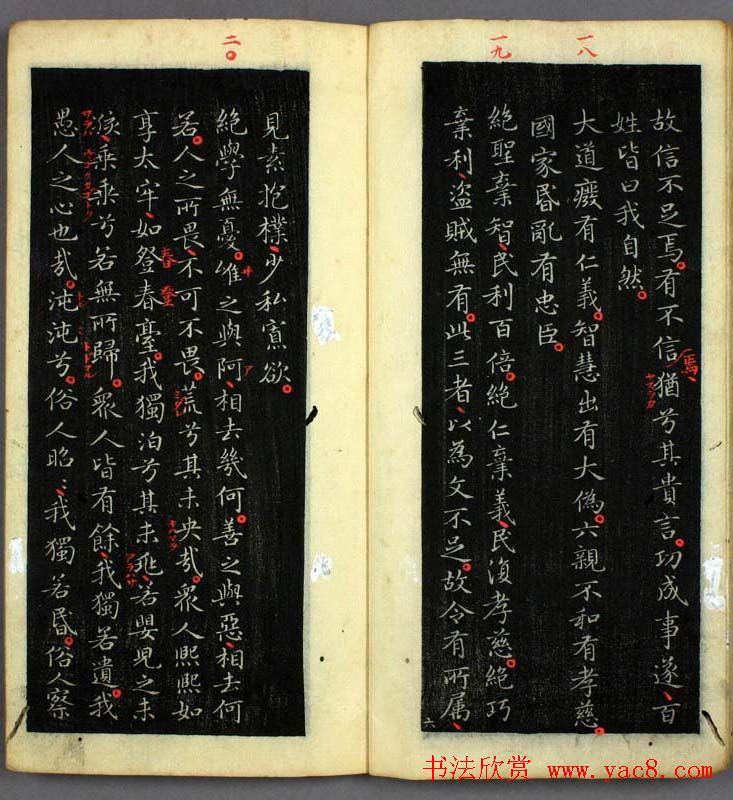 一八
一九
故信不足焉。有不信、猶兮其貴言。功成事遂、百
焉、
姓皆曰我自然。
大道癈有仁義。智慧出有大偽。六親不和有孝慈。
國家昬亂有忠臣。
絕聖棄智、民利百倍。絕仁棄義、民復孝慈。絕巧
棄利、盜賊無有。此三者、以為文不足。故令有所属、
六
二〇
見素抱樸、少私寡欲。
絕學無憂。唯之與阿、相去幾何。善之與惡、相去何
ア
若。人之所畏、不可不畏。荒兮其未央哉。眾人熙熙如
享太牢、如登春臺。我獨泊兮其未兆、若嬰兒之未
春 登
孩、乘乘兮若無所歸。眾人皆有餘、我獨若遺。我
トドマル
愚人之心也哉。沌沌兮。俗人昭〻、我獨若昬。俗人察
书法欣赏 www.yac8.com